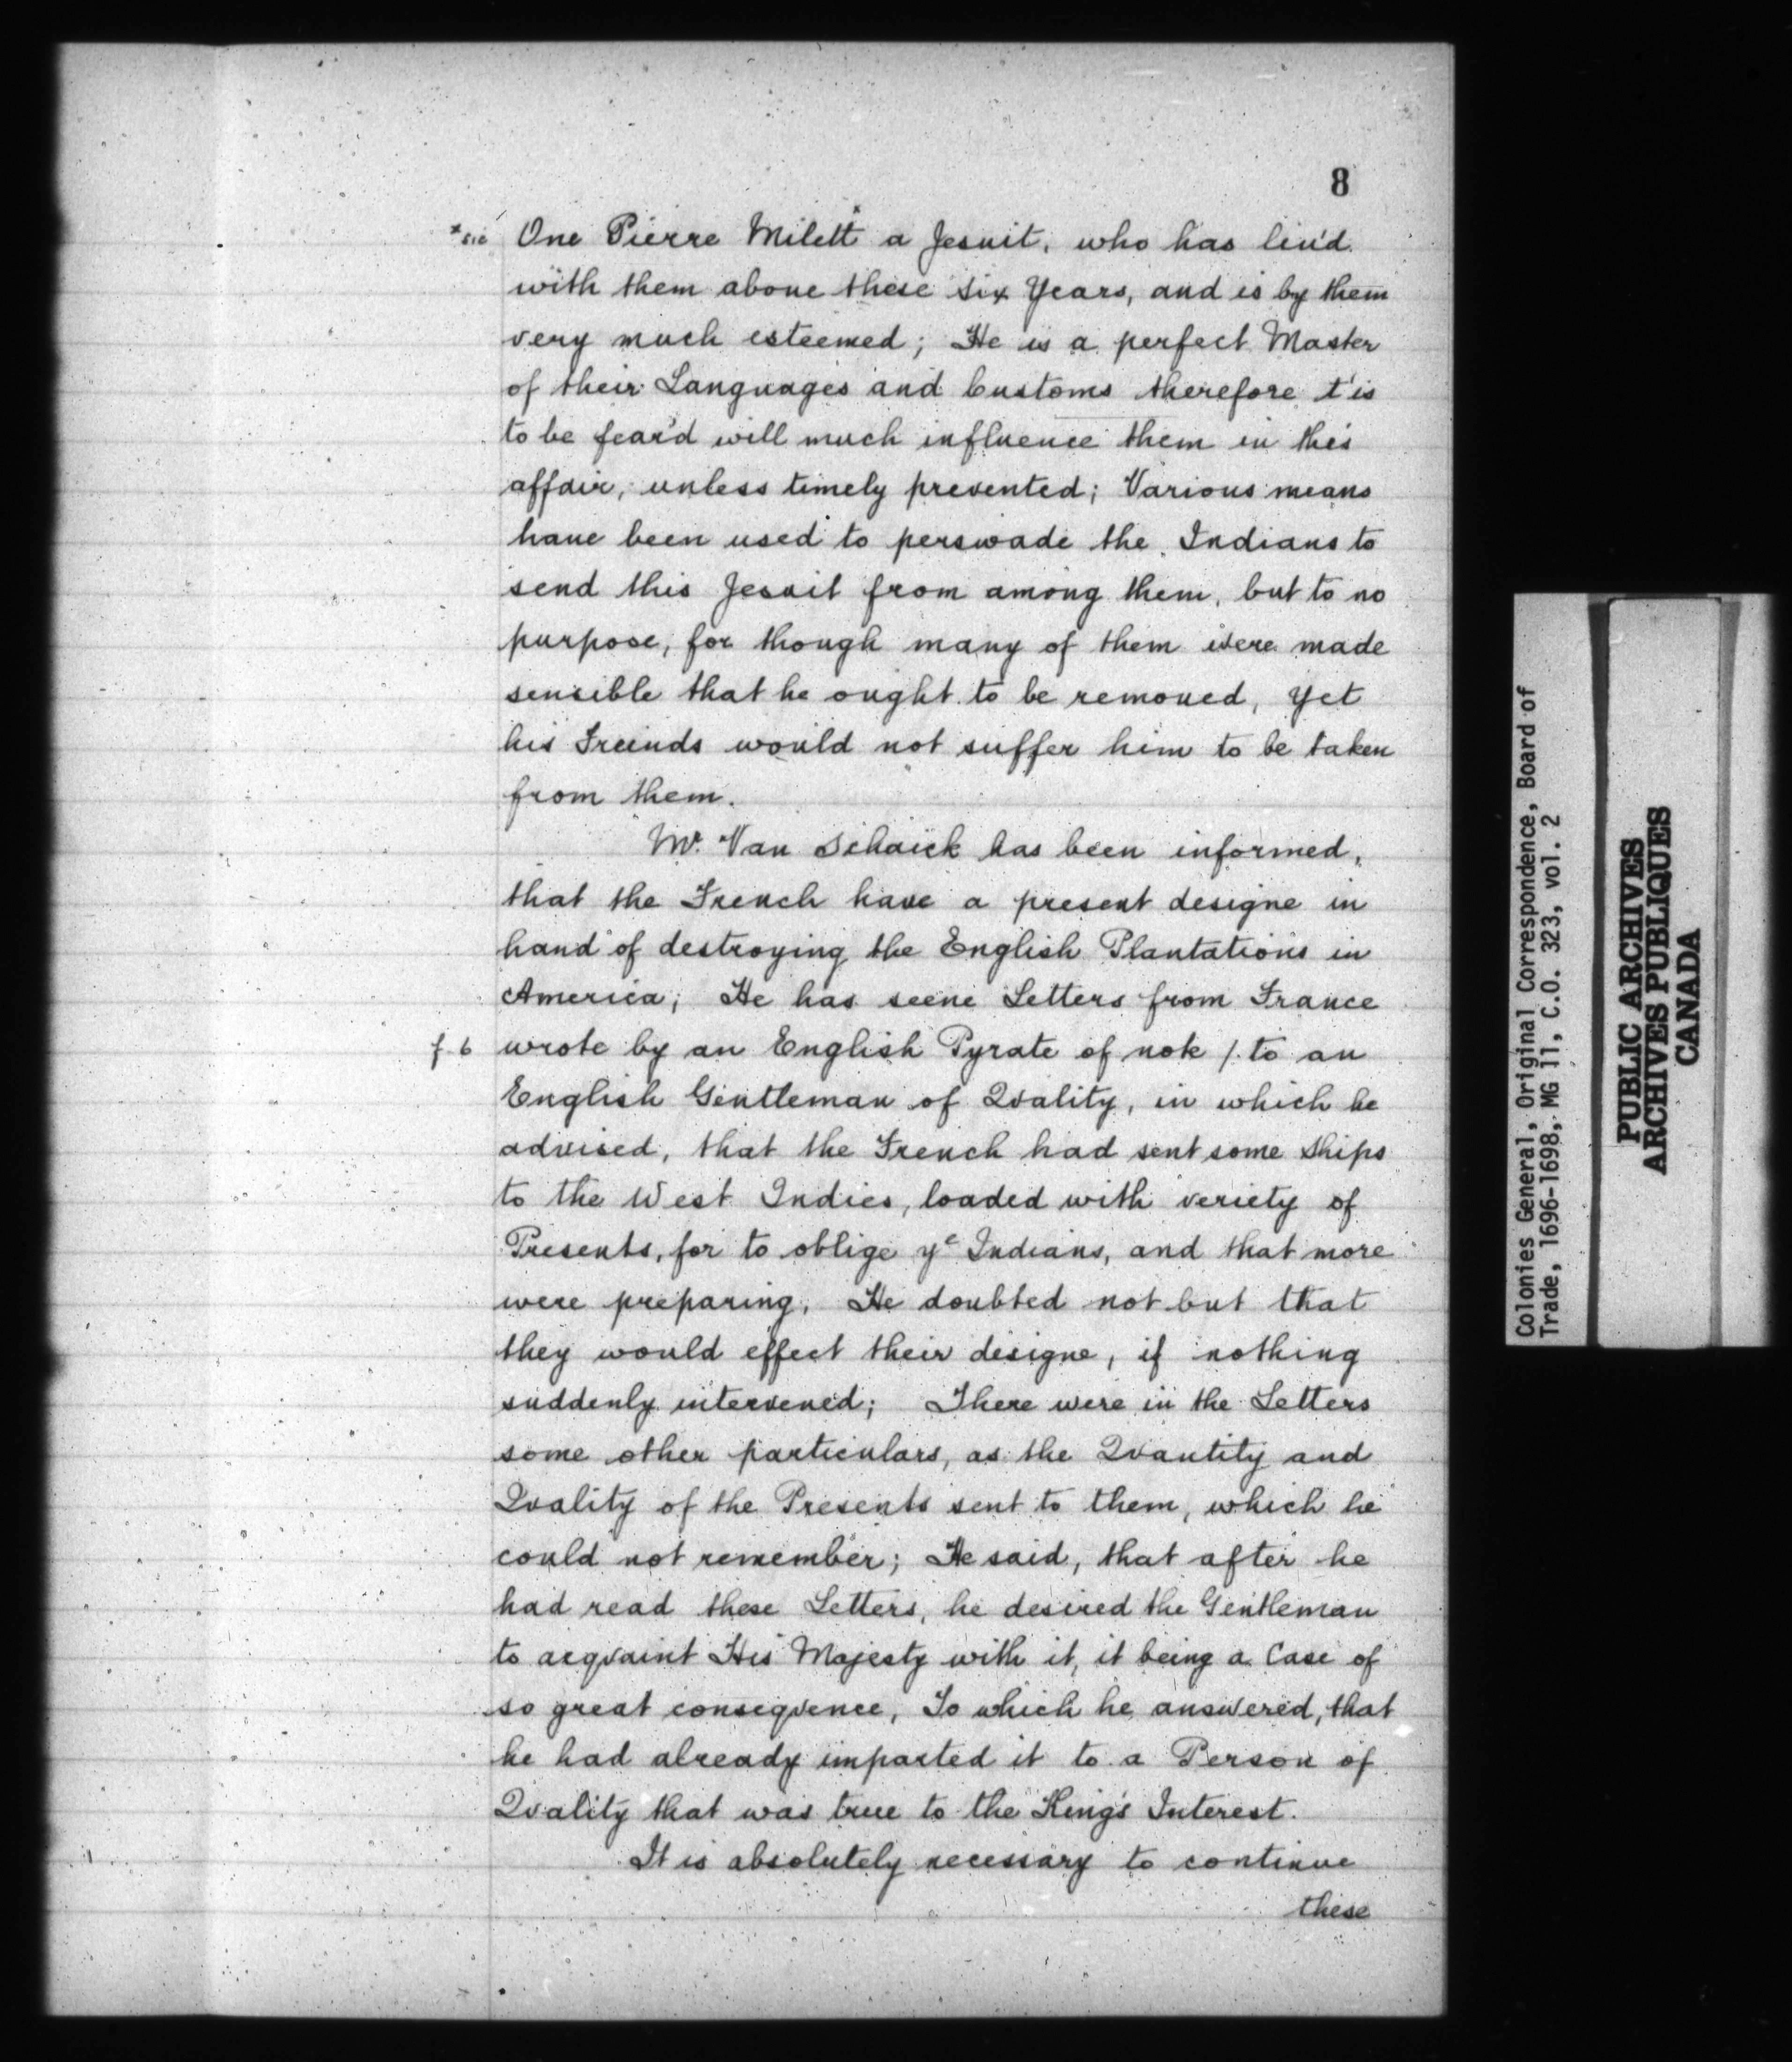 8
*sic One Pierre Milett* a Jesuit, who has liu'd
with them aboue these six Years, and is by them
very much esteemed; He is a perfect Master
of their Languages and Customs therefore t'is
to be fear'd will much influence them in this
affair, unless timely prevented; Various means
haue been used to perswade the Indians to
send this Jesuit from among them, but to no
purpose, for though many of them were made
sensible that he ought to be remoued, Yet
his Freinds would not suffer him to be taken
from them.
Mr. Van Schaick has been informed,
that the French have a present designe in
hand of destroying the English Plantations in
America; He has seene Letters from France
f. 6 wrote by an English Pyrate of note /. to an
English Gentleman of Qvality, in which he
advised, that the French had sent some Ships
to the West Indies, loaded with veriety of
Presents, for to oblige ye Indians, and that more
were preparing, He doubted not but that
they would effect their designe, if nothing
suddenly intervened; There were in the Letters
some other particulars, as the Qvantity and
Qvality of the Presents sent to them, which he
could not remember; He said, that after he
had read these Letters, he desired the Gentleman
to acqvaint His Majesty with it, it being a Case of
so great conseqvence, To which he answered, that
he had already imparted it to a Person of
Qvality that was true to the King's Interest.
It is absolutely necessary to continue
these
Colonies General, Original Correspondence, Board of
Trade, 1696-1698, MG 11, C.O. 323, vol. 2
PUBLIC ARCHIVES
ARCHIVES PUBLIQUES
CANADA